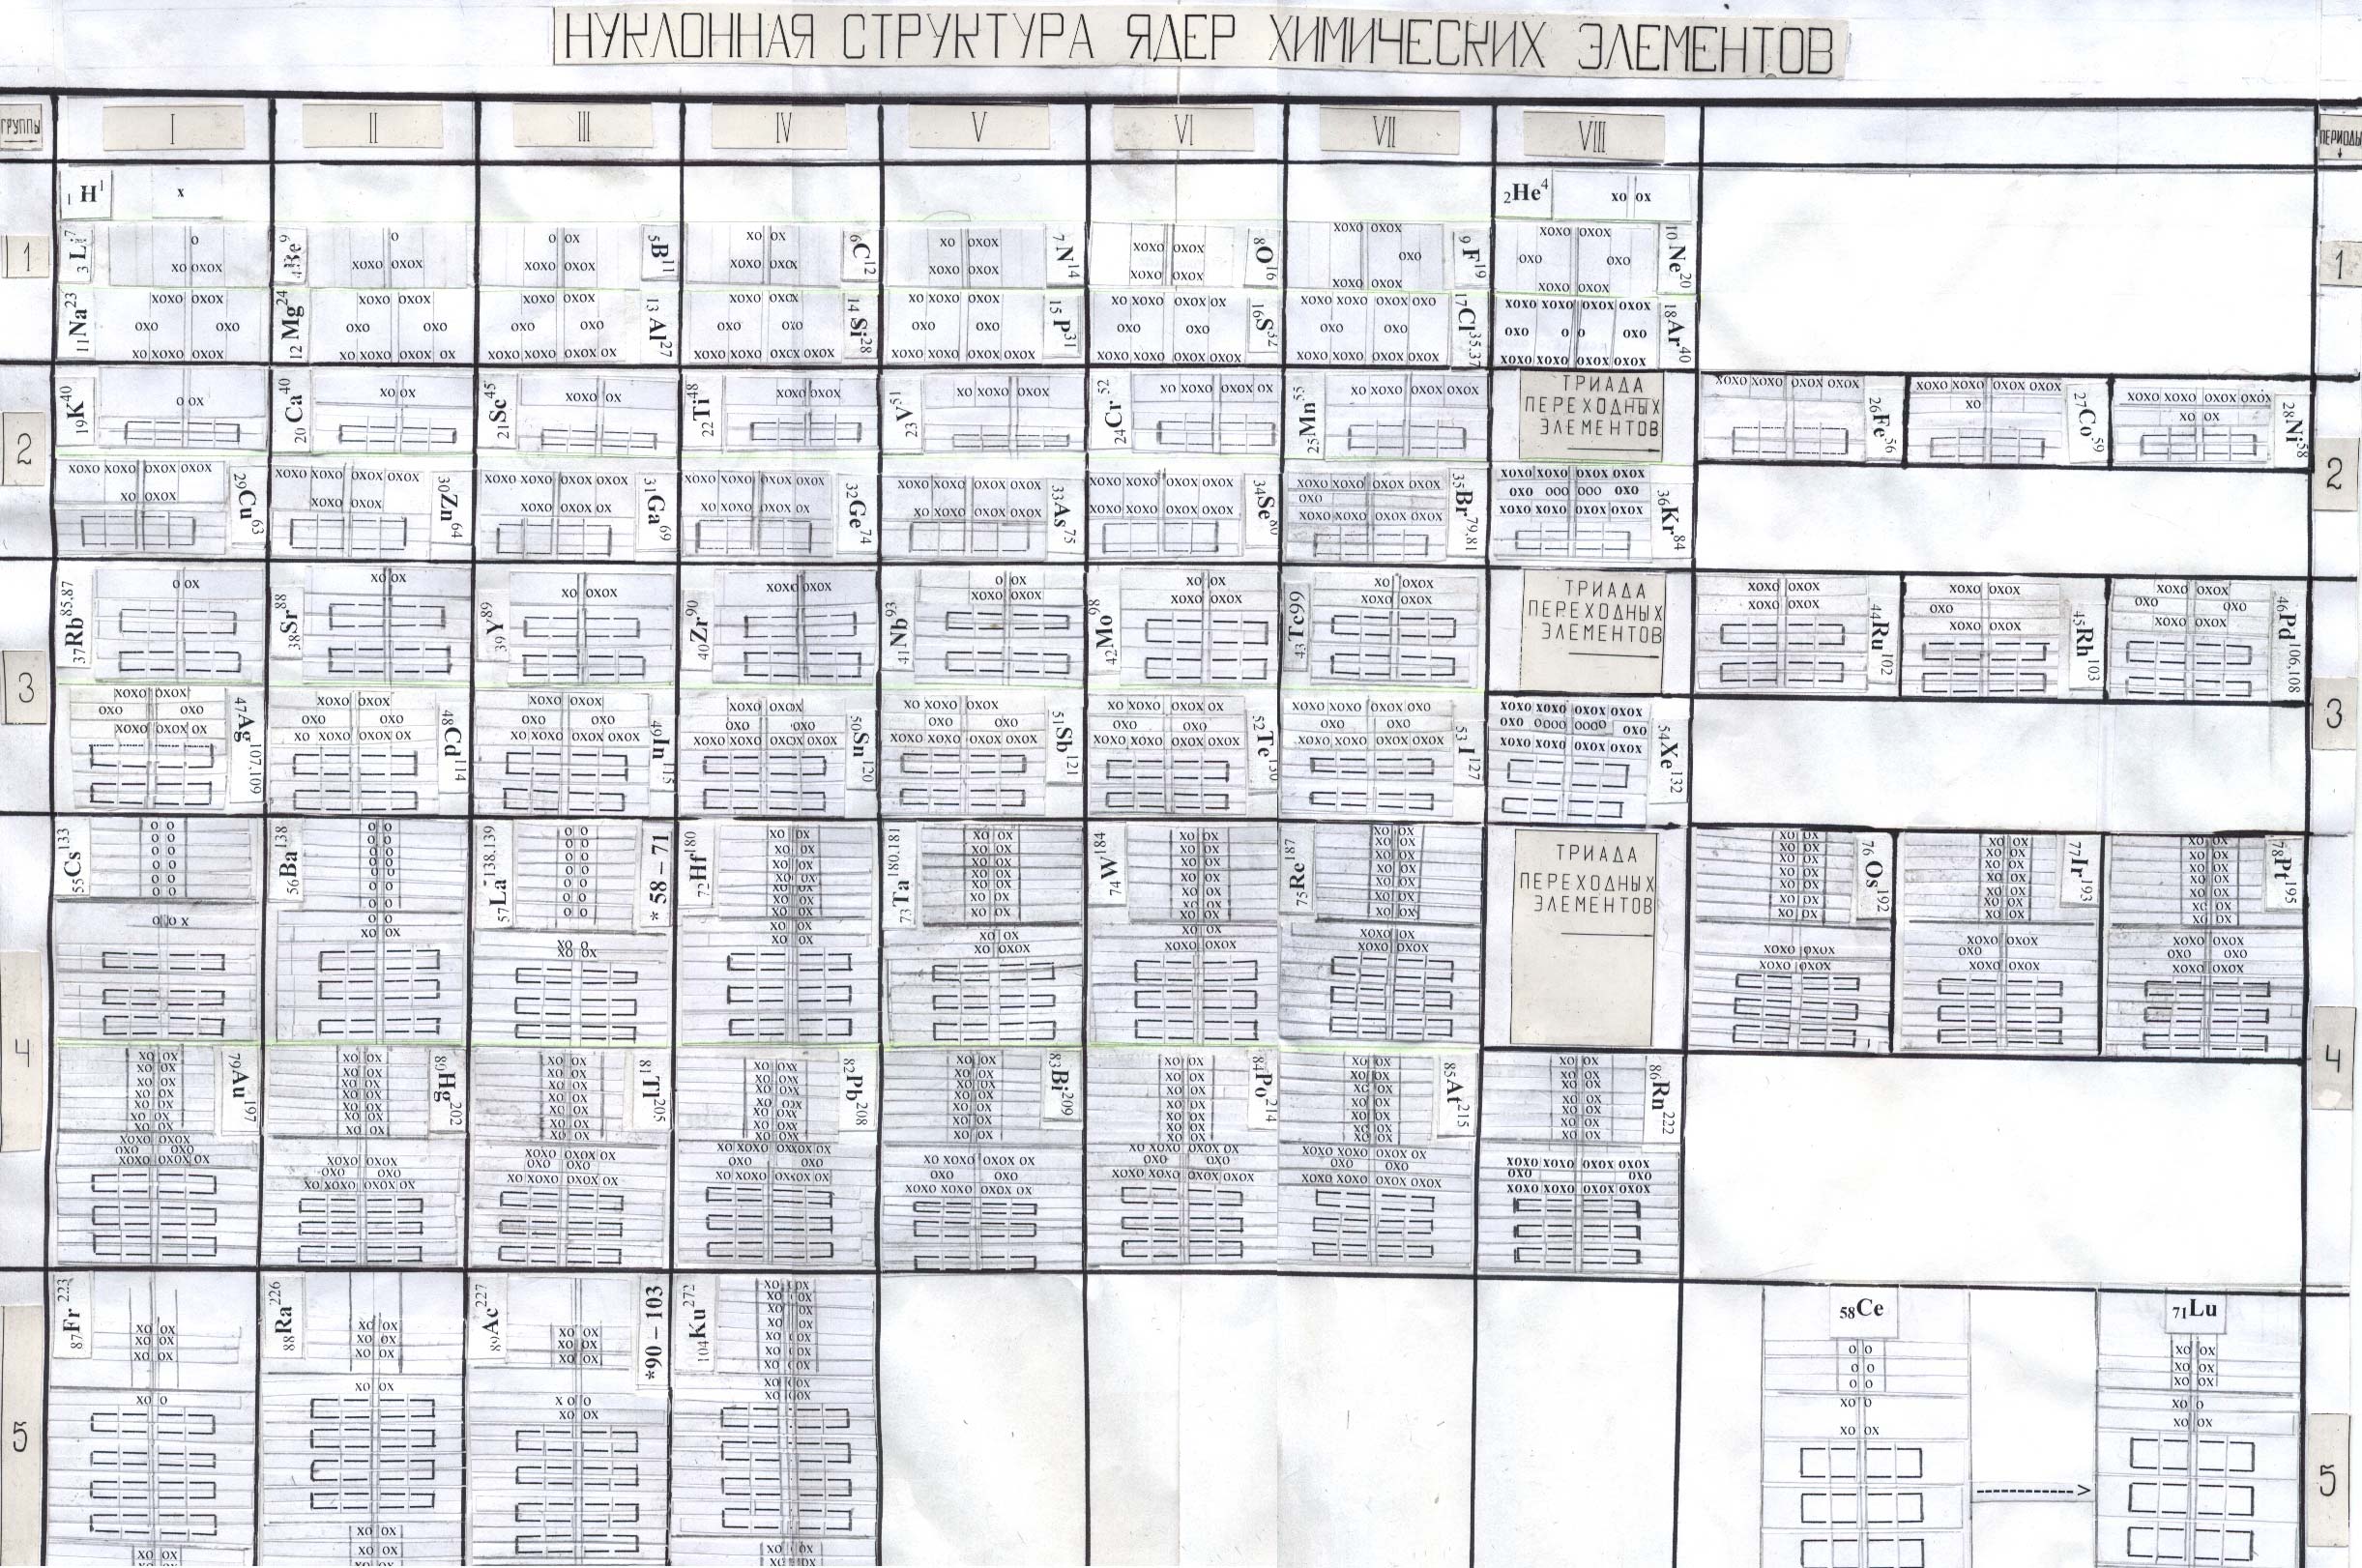 НУКЛОННАЯ СТРУКТУРА ЯДЕР ХИМИЧЕСКИХ ЭЛЕМЕНТОВ
ГРУППЫ I II III IV V VI VII VIII ПЕРИОДЫ
1 H 1 x 2 He 4 xo ox
1
3 Li 7 o xo oxox
4 Be 9 o xoxo oxox
o ox xoxo oxox 5 B 11
xo ox xoxo oxox 6 C 12
xo oxox xoxo oxox 7 N 14
xoxo oxox xoxo oxox 8 O 16
xoxo oxox oxo xoxo oxox 9 F 19
xoxo oxox oxo oxo xoxo oxox 10 Ne 20
1
11 Na 23 xoxo oxox oxo oxo xo xoxo oxox
12 Mg 24 xoxo oxox oxo oxo xo xoxo oxox ox
xoxo oxox oxo oxo xoxo xoxo oxox ox 13 Al 27
xoxo oxox oxo oxo xoxo xoxo oxox oxox 14 Si 28
xo xoxo oxox oxo oxo xoxo xoxo oxox oxox 15 P 31
xo xoxo oxox ox oxo oxo xoxo xoxo oxox oxox 16 S 32
xoxo xoxo oxox oxo oxo oxo xoxo xoxo oxox oxox 17 Cl 35,37
xoxo xoxo oxox oxox oxo o o oxo xoxo xoxo oxox oxox 18 Ar 40
2
19 K 40 o ox
20 Ca 40 xo ox
21 Sc 45 xoxo ox
22 Ti 48 xoxo oxox
23 V 51 xo xoxo oxox
24 Cr 52 xo xoxo oxox ox
25 Mn 55 xo xoxo oxox oxox
ТРИАДА
ПЕРЕХОДНЫХ
ЭЛЕМЕНТОВ
xoxo xoxo oxox oxox 26 Fe 56
xoxo xoxo oxox oxox xo 27 Co 59
xoxo xoxo oxox oxox xo ox 28 Ni 58
2
xoxo xoxo oxox oxox xo oxox 29 Cu 63
xoxo xoxo oxox oxox xoxo oxox 30 Zn 64
xoxo xoxo oxox oxox xoxo oxox ox 31 Ga 69
xoxo xoxo oxox oxox xoxo xoxo oxox ox 32 Ge 74
xoxo xoxo oxox oxox xo xoxo oxox oxox 33 As 75
xoxo xoxo oxox oxox xoxo xoxo oxox oxox 34 Se 80
xoxo xoxo oxox oxox oxo xoxo xoxo oxox oxox 35 Br 79,81
xoxo xoxo oxox oxox oxo ooo ooo oxo xoxo xoxo oxox oxox 36 Kr 84
3
37 Rb 85,87 o ox
38 Sr 88 xo ox
39 Y 89 xo oxox
40 Zr 90 xoxo oxox
41 Nb 93 o ox xoxo oxox
42 Mo 98 xo ox xoxo oxox
43 Tc 99 xo oxox xoxo oxox
ТРИАДА
ПЕРЕХОДНЫХ
ЭЛЕМЕНТОВ
xoxo oxox xoxo oxox 44 Ru 102
xoxo oxox oxo xoxo oxox 45 Rh 103
xoxo oxox oxo oxo xoxo oxox 46 Pd 106,108
3
xoxo oxox oxo oxo xoxo oxox ox 47 Ag 107,109
xoxo oxox oxo oxo xo xoxo oxox ox 48 Cd 114
xoxo oxox oxo oxo xo xoxo oxox oxox 49 In 115
xoxo oxox oxo oxo xoxo xoxo oxox oxox 50 Sn 120
xo xoxo oxox oxo oxo xoxo xoxo oxox oxox 51 Sb 121
xo xoxo oxox ox oxo oxo xoxo xoxo oxox oxox 52 Te 130
xoxo xoxo oxox oxo oxo oxo xoxo xoxo oxox oxox 53 I 127
xoxo xoxo oxox oxox oxo oooo oooo oxo xoxo xoxo oxox oxox 54 Xe 132
4
55 Cs 133
56 Ba 138
57 La 138,139
* 58 – 71
72 Hf 180
73 Ta 180,181
74 W 184
75 Re 187
ТРИАДА
ПЕРЕХОДНЫХ
ЭЛЕМЕНТОВ
76 Os 192
77 Ir 193
78 Pt 195
4
79 Au 197
80 Hg 202
81 Tl 205
82 Pb 208
83 Bi 209
84 Po 214
85 At 215
86 Rn 222
5
87 Fr 223
88 Ra 226
89 Ac 227
*90 – 103
104 Ku 272
58 Ce
71 Lu
5